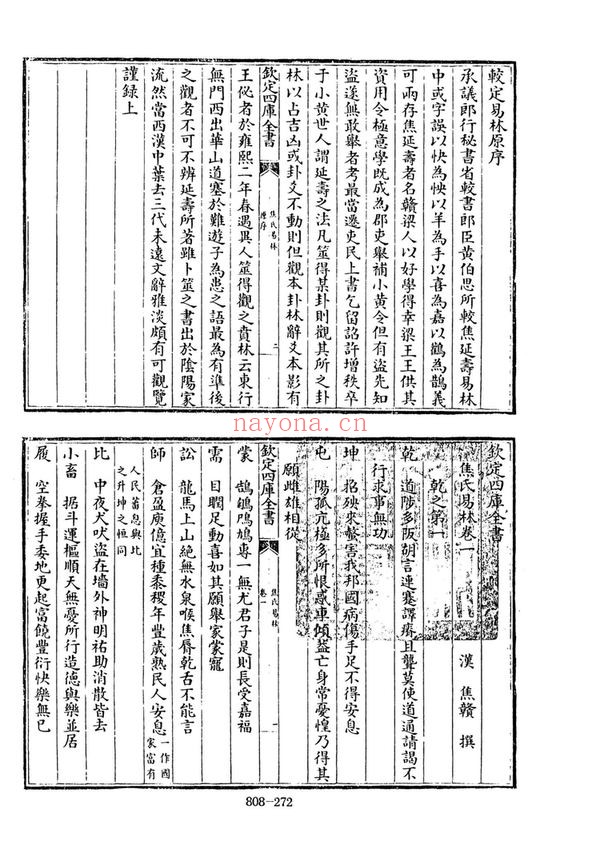 較定易林原序
承議郎行秘書省較書郎臣黃伯思所較焦延壽易林
中或字誤以快為怏以羊為手以喜為嘉以鶴為鵲義
可兩存焦延壽者名贛梁人以好學得幸梁王王供其
資用令極意學既成為郡吏舉補小黃令但有盜先知
盜遂無敢舉者考最當遷吏民上書乞留詔許增秩卒
于小黃世人謂延壽之法凡筮得某卦則觀其所之卦
林以占吉凶或卦爻不動則但觀本卦林辭爻本影有
欽定四庫全書
焦氏易林
原序
二
王佖者於雍熙二年春遇異人筮得觀之賁林云東行
無門西出華山道塞於難遊子為患之語最為有準後
之觀者不可不辨延壽所著雖卜筮之書出於陰陽家
流然當西漢中葉去三代未遠文辭雅淡頗有可觀覽
謹録上
欽定四庫全書
焦氏易林卷一
漢 焦贛 撰
乾之第一
乾 道陟多阪胡言連蹇譯瘖且聾莫使道通請謁不
行求事無功
坤 招殃來螫害我邦國病傷手足不得安息
屯 陽孤亢極多所恨惑車傾蓋亡身常憂惶乃得其
願雌雄相從
欽定四庫全書
焦氏易林
卷一
一
蒙 鵠鵴鳲鳩專一無尤君子是則長受嘉福
需 目瞤足動喜如其願舉家蒙寵
訟 龍馬上山絶無水泉喉焦脣乾舌不能言
師 倉盈庾億宜種黍稷年豐歲熟民人安息
一作國
家富有
人民蕃息與比
之升坤之恒同
比 中夜犬吠盜在墻外神明祐助消散皆去
小畜 据斗運樞順天無憂所行造德與樂並居
履 空拳握手委地更起富饒豐衍快樂無已
808-272
nayona.cn